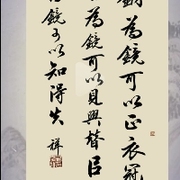 為鏡可以正衣冠
為鏡可以見興
鏡可以知得失
祥